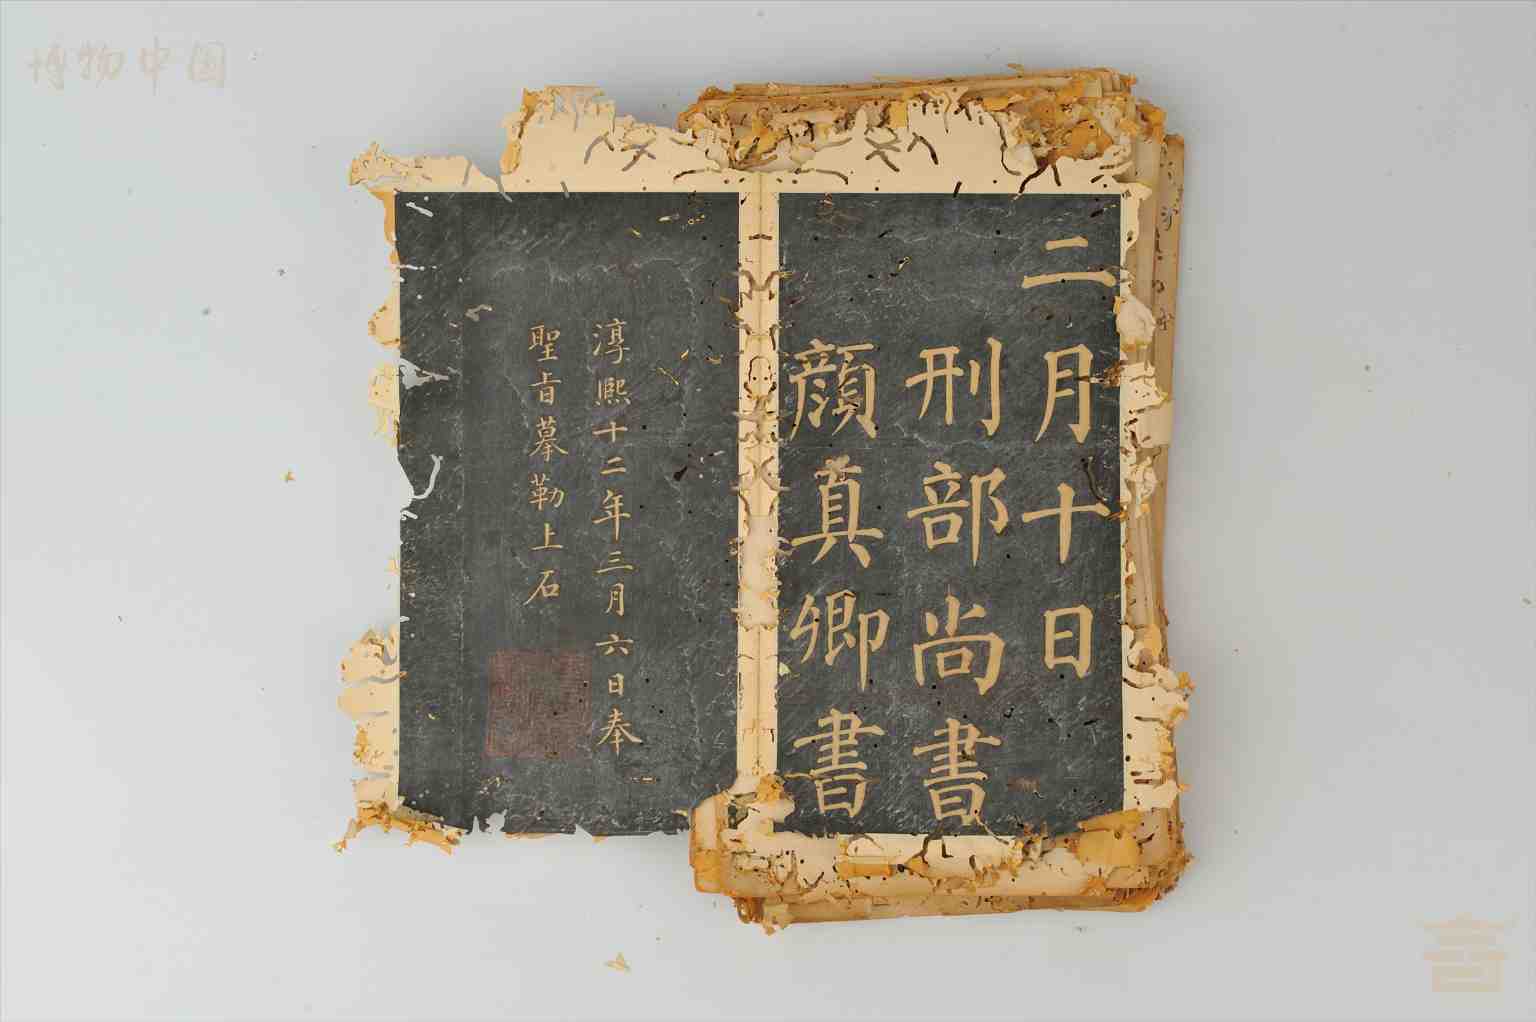 博物中国
二月十日
刑部尚書
顏真卿書
淳熙十二年三月六日奉
聖旨摹勒上石